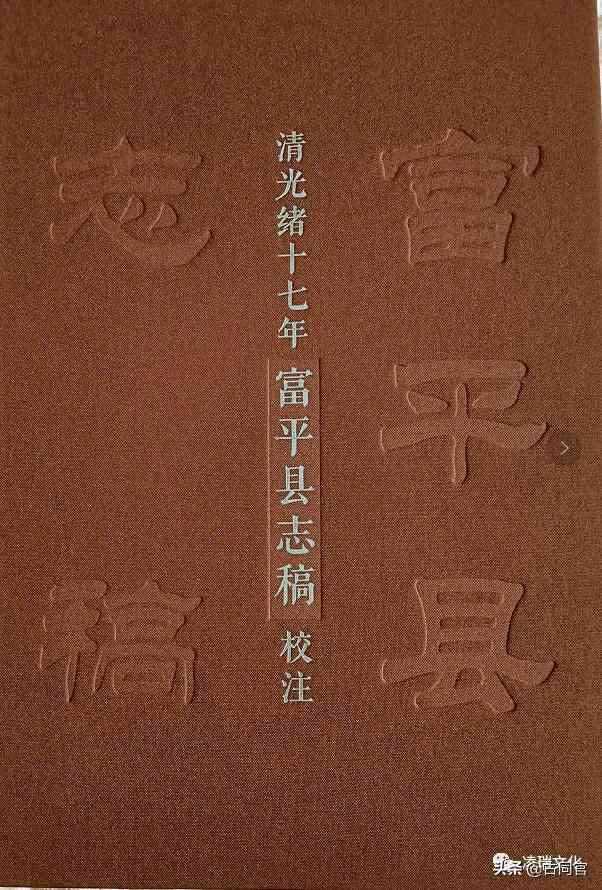 富平县
清光绪十七年 富平县志稿 校注
志稿
头条 @古同官